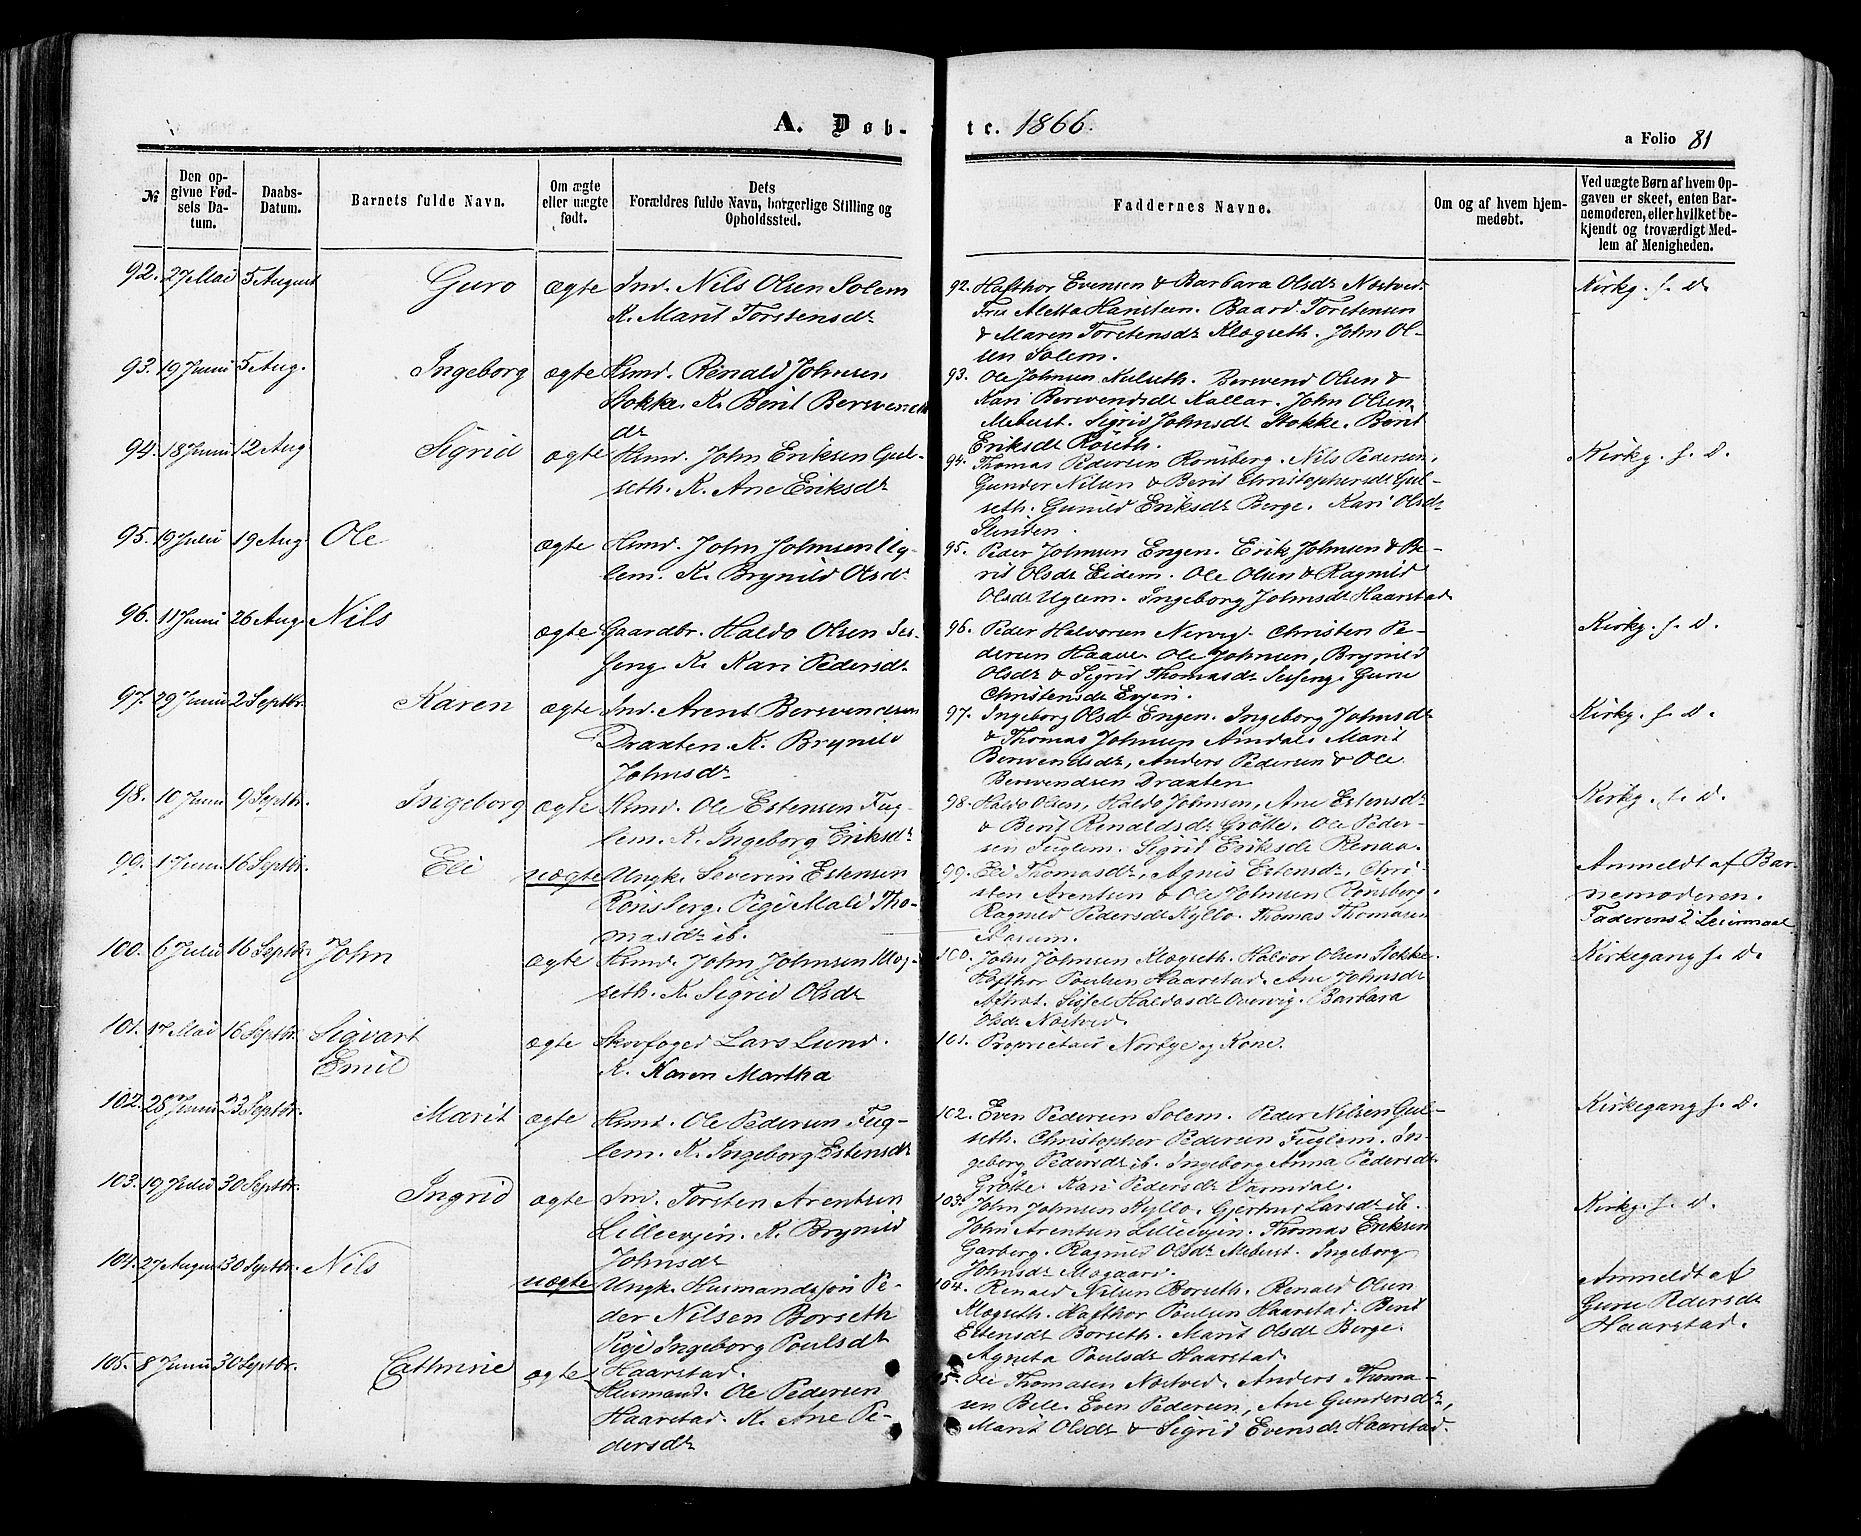 A. Døb- te. 1866.
a Folio 81
№
Den op-
givne Fød-
sels Da-
tum.
Daabs-
Datum.
Barnets fulde Navn.
Om ægte
eller uægte
født.
Dets
Forældres fulde Navn, borgerlige Stilling og
Opholdssted.
Faddernes Navne.
Om og af hvem hjem-
medøbt.
Ved uægte Børn af hvem Op-
gaven er skeet, enten Bar-
nemoderen, eller hvilket be-
kjendt og troværdigt Med-
lem af Menigheden.
92. 27 Mai 5 August Guro ægte Ind. Nils Olsen Solem
K. Marit Torstensdr
92. Hafthor Evensen & Barbara Olsdr Nostved.
Frk Aletta Hansteen. Baard Torstensen
& Maren Torstensdr Klogseth. John Ol-
sen Solem.
Kirkg. f. D.
93. 19 Juni 5 Aug. Ingeborg ægte Hsmd. Renald Johnsen
Stokke. K. Berit Bersvends
dr
93. Ole Johnsen Nulseth. Bersvend Olsen &
Kari Bersvendsdr Kallar. John Olsen
Mebust. Sigrid Johnsdr Stokke. Berit
Eriksdr Roseth.
94. 18 Juni 12 Aug Sigrid ægte Hsmd. John Eriksen Gul-
seth. K. Ane Eriksdr
94. Thomas Pedersen Ronsberg. Nils Pedersen,
Gunder Nilsen & Berit Christophersdr Gul-
seth. Gunild Eriksdr Berge. Kari Olsdr
Slinden.
Kirkg. f. D.
95. 19 Juli 19 Aug Ole ægte Hsmd. John Johnsen Ug-
lem. K. Brynild Olsdr
95. Peder Johnsen Engen. Erik Johnsen & Be-
rit Olsdr Eidem. Ole Olsen & Ragnild
Olsdr Uglem. Ingeborg Johnsdr Haarstad
96. 11 Juni 26 Aug. Nils ægte Gaardbr. Haldo Olsen Ses-
seng K. Kari Pedersdr
96. Peder Halvorsen Nervig. Christen Pe-
dersen Haave. Ole Johnsen, Brynild
Olsdr & Sigrid Thomasdr Sesseng. Guru
Christensdr Evjen.
Kirkg. f. D.
97. 29 Juni 2 Septbr. Karen ægte Ind. Arent Bersvendsen
Draxten. K. Brynild
Johnsdr
97. Ingeborg Olsdr Engen. Ingeborg Johnsdr
& Thomas Johnsen Amdal. Marit
Bersvendsdr, Anders Pedersen & Ole
Bersvendsen Draxten
Kirkg. f. D.
98. 10 Juni 9 Septbr. Ingeborg ægte Hsmd. Ole Estensen Fug-
lem. K. Ingeborg Eriksdr
98. Haldo Olsen, Haldo Johnsen, Ane Estensdr
& Berit Renaldsdr Grøtte. Ole Peder-
sen Fuglem. Sigrid Eriksdr Renaa.
Kirkg. f. D.
99. 1 Juni 16 Septbr. Eli uægte Ungk. Severin Estensen
Ronsberg. Pige Mali Tho-
masdr ib.
99. Eli Thomasdr, Agnis Estensdr, Chri-
sten Arentsen & Ole Johnsen Ronsberg.
Ragnild Pedersdr Kyllo. Thomas Thomasen
Aasum.
Anmeldt af Bar-
nemoderen.
Faderens 2. Leiermaal
100. 6 Juli 16 Septbr John ægte Hsmd. John Johnsen Klog-
seth. K. Sigrid Olsdr
100. John Johnsen Klogseth. Halvor Olsen Stokke.
Hafthor Poulsen Haarstad. Ane Johnsdr
Aftret. Sigfel Haldosdr Overvig. Barbara
Olsdr Nostved.
Kirkegang f. D.
101. 17 Mai 16 Septbr. Sigvart
Emil ægte Skovfoged Lars Lund.
K. Karen Martha
101. Proprietair Norbye og Kone.
102. 28 Juni 23 Septbr. Marit ægte Hsmd. Ole Pedersen Fug-
lem. K. Ingeborg Estensdr
102. Even Pedersen Solem. Peder Nilsen Gul-
seth. Christopher Pedersen Fuglem. In-
geborg Pedersdr ib. Ingeborg Anna Pedersdr
Grøtte. Kari Pedersdr Varmdal.
Kirkegang f. D.
103. 19 Juli 30 Septbr. Ingrid ægte Ind. Torsten Arentsen
Lilleevjen. K. Brynild
Johnsdr
103. John Johnsen Kyllo. Gjertrud Larsdr ib.
John Arentsen Lilleevjen. Thomas Eriksen
Garberg. Ragnild Olsdr Mebust. Ingeborg
Johnsdr Mogaard.
Kirkg. f. D.
104. 27 August 30 Septbr. Nils uægte Ungk. Husmandssøn Pe-
der Nilsen Borseth
Pige Ingeborg Poulsdr
Haarstad.
104. Renald Nilsen Borseth. Renald Olsen
Klogseth. Hafthor Poulsen Haarstad. Berit
Estensdr Borseth. Marit Olsdr Berge.
Agneta Poulsdr Haarstad.
Anmeldt af
Guru Pedersdr
Haarstad.
105. 8 Juni 30 Septbr. Cathrine ægte Husmand. Ole Pedersen
Haarstad. K. Ane Pe-
dersdr
105. Ole Thomasen Nostved. Anders Thoma-
sen Bele. Even Pedersen, Ane Gundersdr,
Marit Olsdr & Sigrid Evensdr Haarstad.